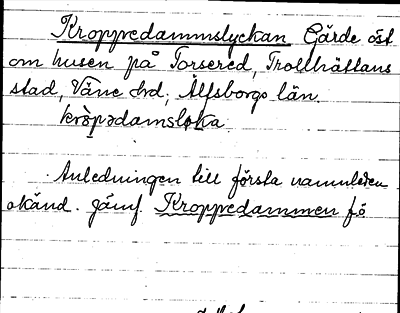 Kroppedammslyckan Gärde öst
om husen på Torsered, Trollhättans
stad, Väne hrd, Älfsborgs län.
kròpədamsløka
Anledningen till första namnleden
okänd. Jämf. Kroppedammen fö